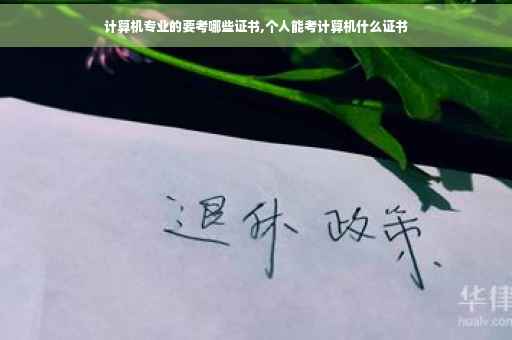 计算机专业的要考哪些证书,个人能考计算机什么证书
退休 政策
华律
hualv.com